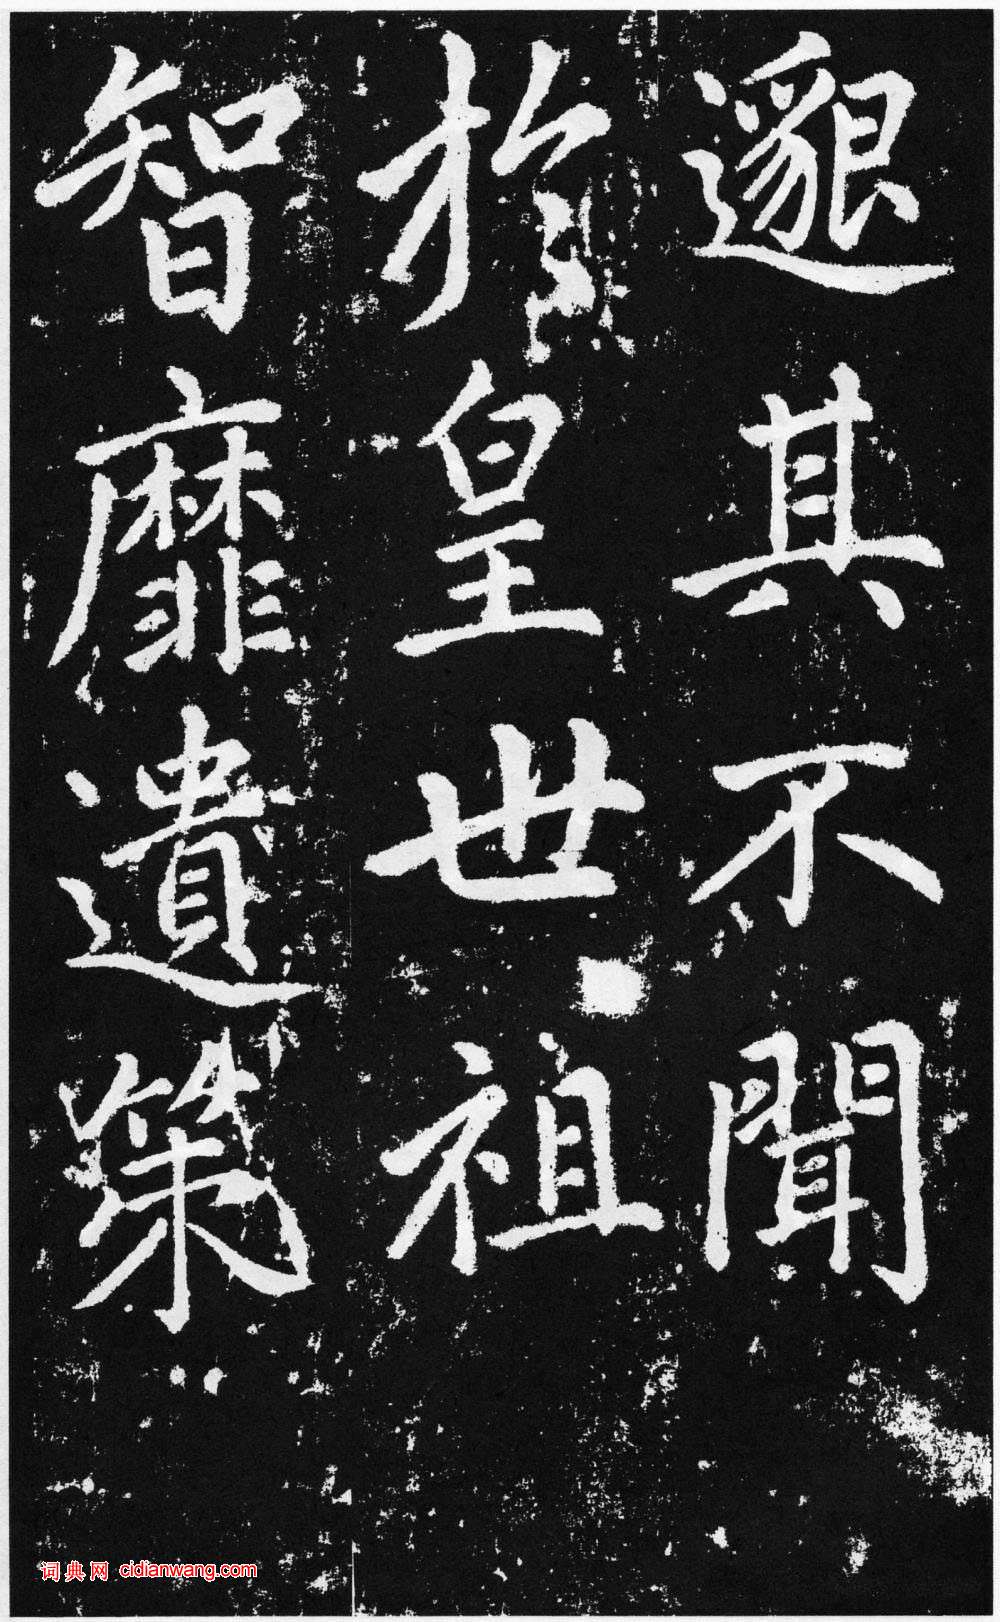 邈其不聞
於皇世祖
智靡遺策
词典网 cidianwang.com